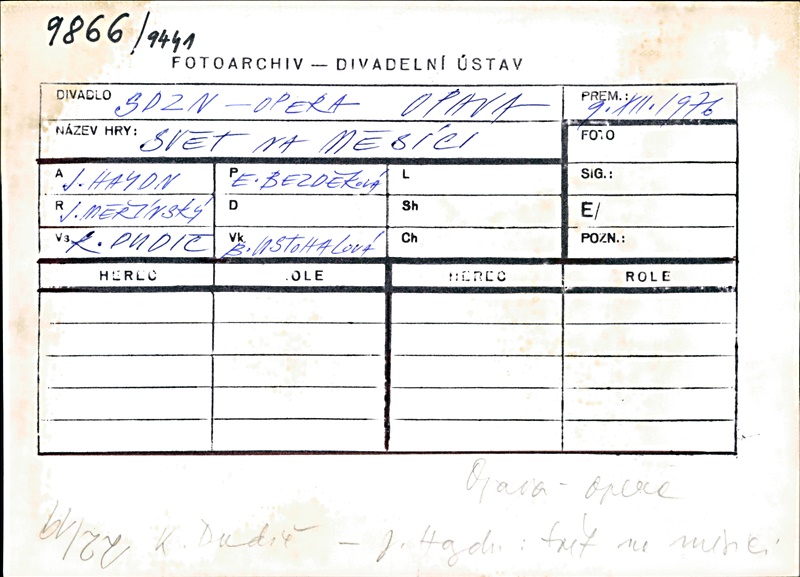 9866/9441
FOTOARCHIV — DIVADELNÍ ÚSTAV
DIVADLO SDZN — OPERA OPAVA PREM.: 9. XII. 1976
NÁZEV HRY: SVĚT NA MĚSÍCI FOTO
A J. HAYDN P E. BEZDĚKOVÁ L SIG.:
R J. MEŘÍNSKÝ D Sh E/
Vs K. DUDIČ Vk B. USTOHALOVÁ Ch POZN.:
HEREC ROLE HEREC ROLE
Opava - opera
K. Dudič — J. Haydn: Svět na měsíci